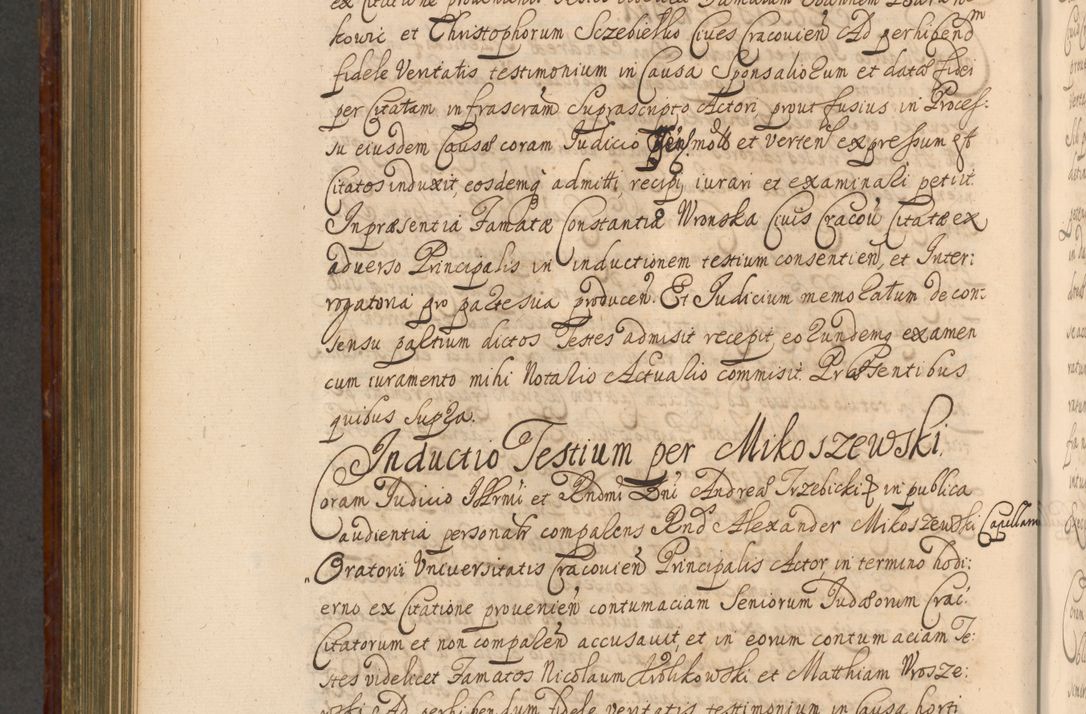 kowic et Christophorum Sczebiello Cives Cracovien̄ Ad perhibend̄m
fidele Veritatis testimonium in Causa Sponsaliorum et datæ fidei
per Citatam infrascram Suprascripto Actori prout fusius in Proces:
su eiusdem Causæ coram Judicio et verten̄ expressum est
Citatos induxit, eosdemq̨ admitti recipi iurari et examinari petiit.
In præsentia Famatæ Constantiæ Wronska Civis Cracov̄ Citatæ ex
adverso Principalis in inductionem testium consentien̄, et Inter:
rogatoria pro parte sua producen̄. Et Judicium memoratum de con:
sensu partium dictos Testes admisit recepit, eorundemq̨ examen
cum iuramento mihi Notario Actuario commisit. Præsentibus
quibus supra.
Inductio Testium per Mikoszewski.
Coram Judicio Illrmi et Rndmi Dni Andreæ Trzebicki in publica
audientia personalr comparens Rnd Alexander Mikoszewski Capellanus
Oratorii Universitatis Cracovien̄ Principalis Actor, in termino hodi:
erno ex Citatione provenien̄ contumaciam Seniorum Judæorum Crac:
Citatorum et non comparen̄ accusavit, et in eorum contumaciam Te:
stes videlicet Famatos Nicolaum Królikowski et Matthiam Wrosze:
wski Ad perhibendum fidele veritatis testimonium in Causa horti